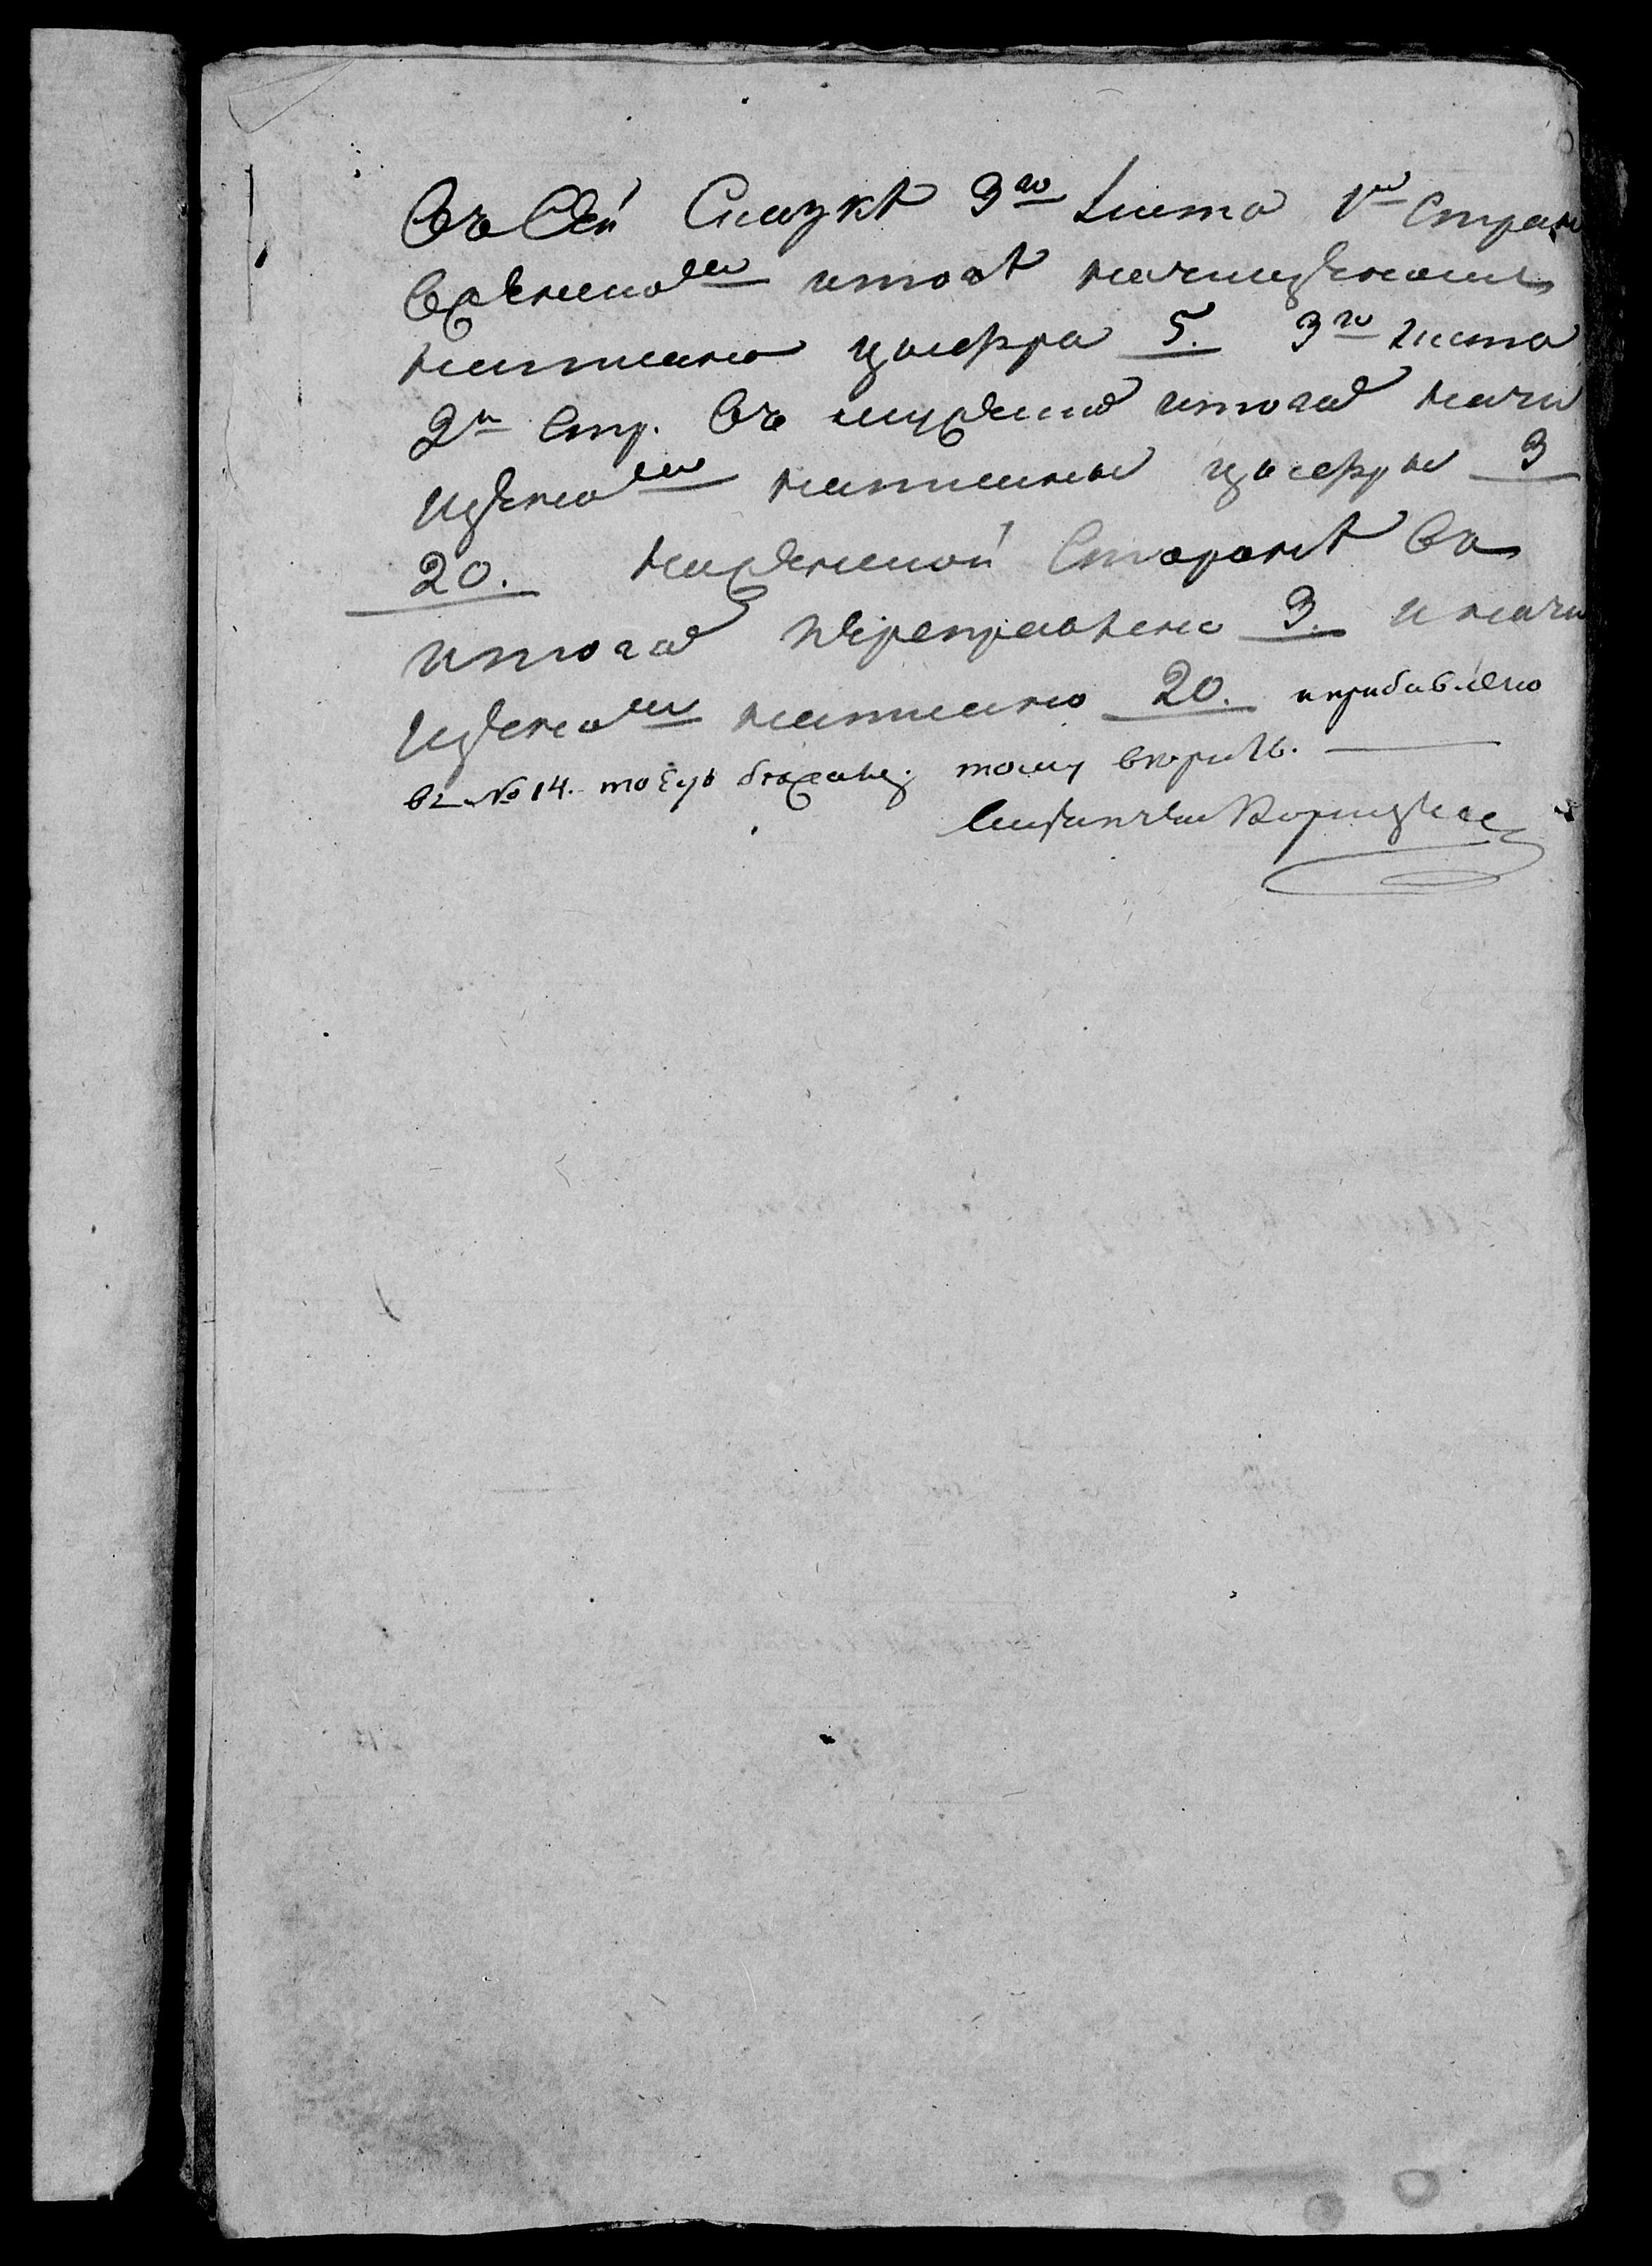 Въ Сей Сказкѣ 3го Листа 1й Стран
въ женскомъ итогѣ начищенномъ
написано цыфра 5. 3го листа
2й Стр. въ мужеском итогѣ начи
щеномъ написаны цыфры 3
20. на женской Сторонѣ въ
итогѣ переправлено 3. и начи
щеномъ написано 20. и прибавлено
въ № 14. тому вѣрить.